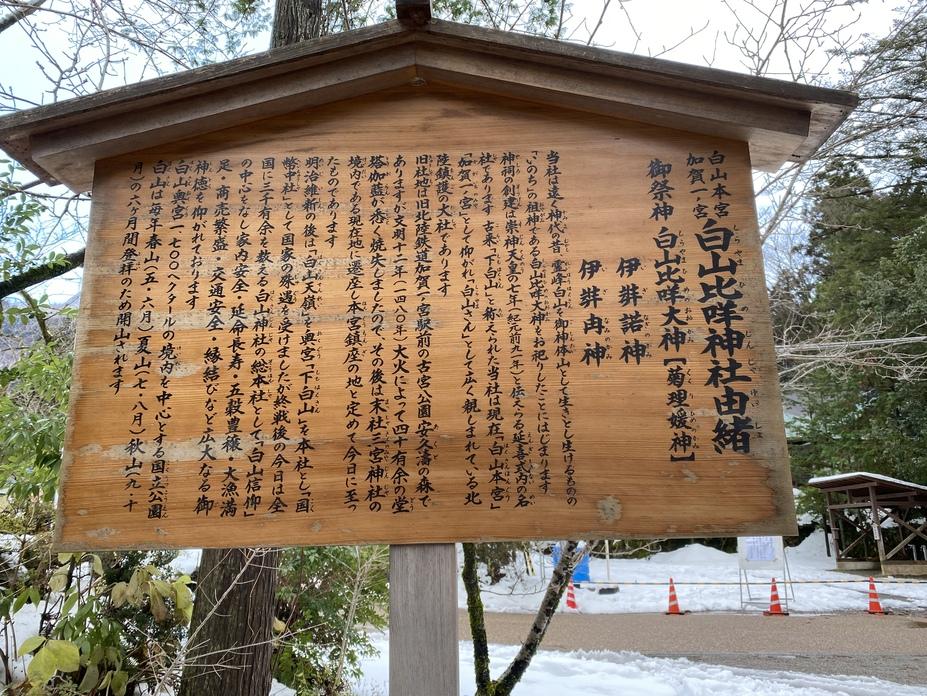 白山本宮
加賀一ノ宮
白山比咩神社由緒
御祭神 白山比咩大神[菊理媛神]
伊弉諾神
伊弉冉神
当社は遠く神代の昔、霊峰白山を御神体山として生きとし生けるものの
「いのち」の祖神である白山比咩大神をお祀りしたことにはじまります
神祠の創建は崇神天皇の七年(紀元前九一年)と伝へる延喜式内の名
社であります 古来「下白山」と称えられた当社は現在「白山本宮」
「加賀一ノ宮」として仰がれ"白山さん"として広く親しまれている北
陸鎮護の大社であります
旧社地は旧北陸鉄道加賀一ノ宮駅前の古宮公園「安久濤の森」で
ありますが文明十二年(一四八〇年)大火によって四十有余の堂
塔伽藍が悉く焼失しましたので、その後は末社三宮神社の
境内である現在地に遷座し本宮鎮座の地と定めて今日に至っ
たものであります
明治維新の後は「白山天嶺」を奥宮「下白山」を本社とし「国
幣中社」として国家の殊遇を受けましたが終戦後の今日は全
国に三千有余を数える白山神社の総本社として「白山信仰」
の中心をなし家内安全・延命長寿・五穀豊穣・大漁満
足・商売繁盛・交通安全・縁結びなど広大なる御
神徳を仰がれております
白山奥宮一七〇〇ヘクタールの境内を中心とする国立公園
白山は毎年春山(五・六月)夏山(七・八月)秋山(九・十
月)の六ヶ月間登拝のため開山されます